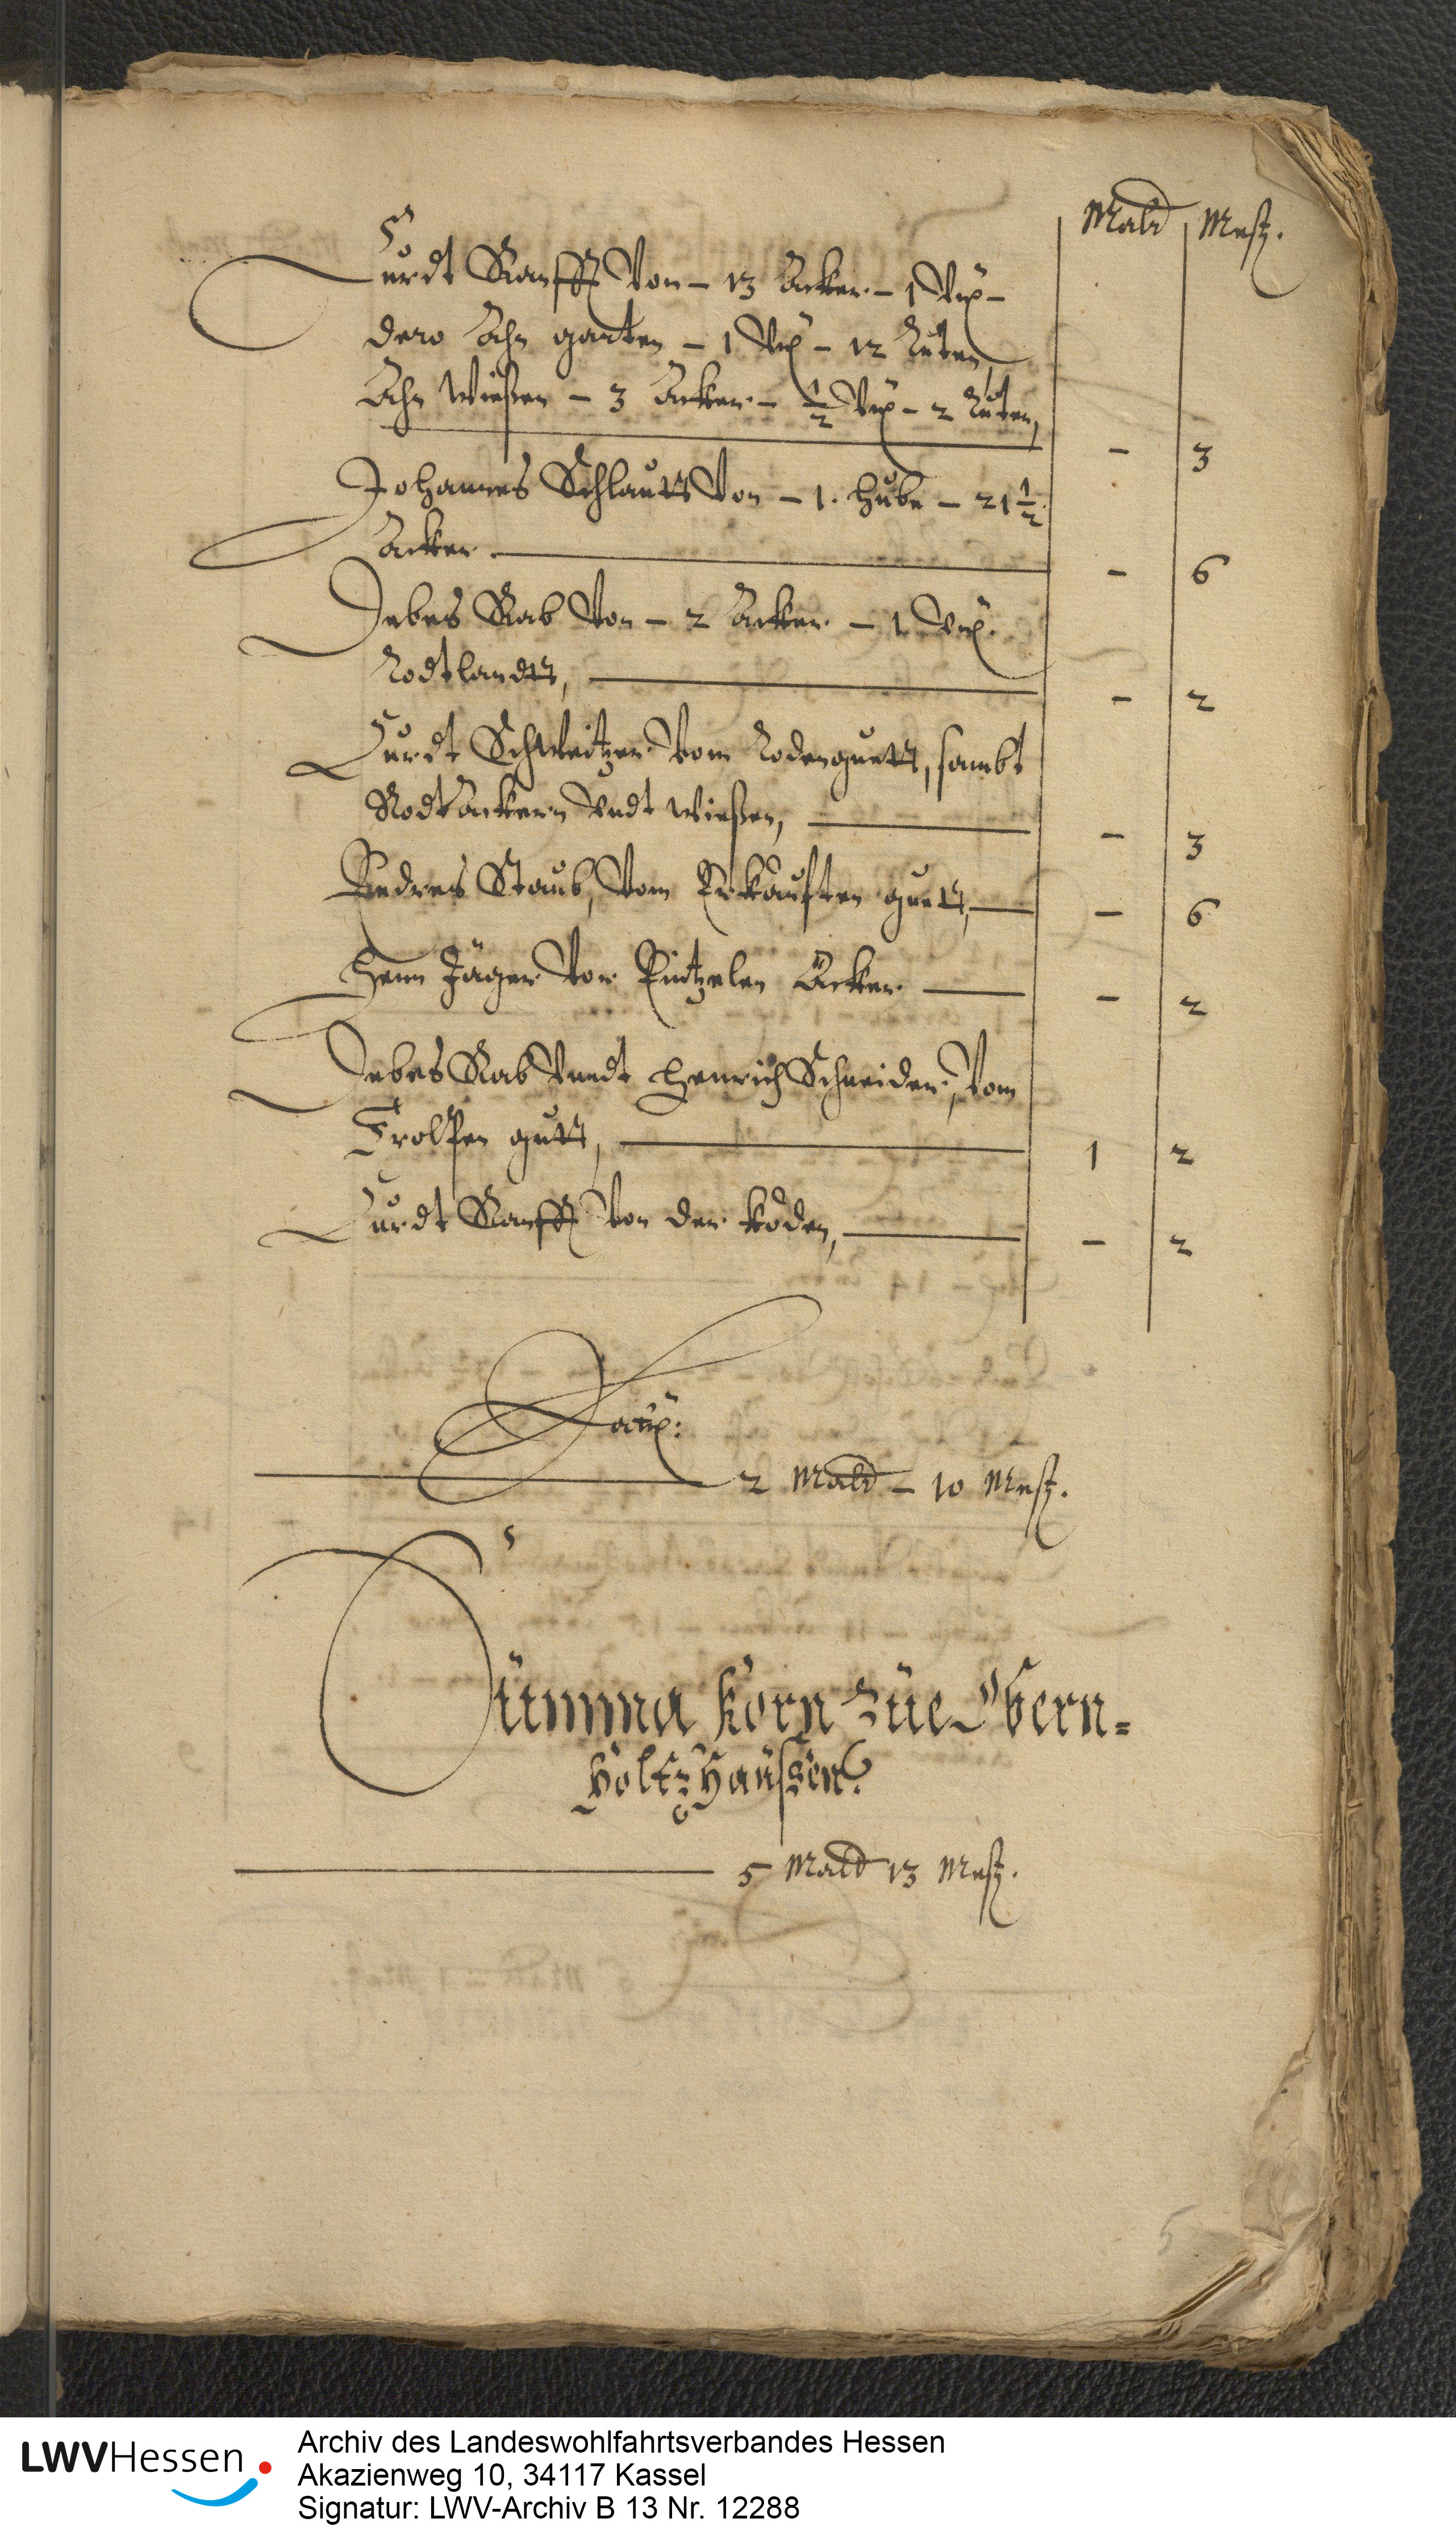 Mald Mesz.
Curdt Ranfft Von – 13 Acker – 1 Vrtl –
dero Ahn garten – 1 Vrtl – 12 Ruten,
Ahn Wießen – 3 Acker – ½ Vrtl – 2 Ruten, – 3
Johannes Schlaurtt Von – 1. hube – 21 ½
Acker. – 6
Debes Rab Von – 2 Acker – 1 Vrtl.
Rodtlandtt, – 2
Curdt Schweitzer Vom Rodenguett, sambt
Rodt Ackern Vndt Wießen, – 3
Endres Staub, Vom Erkaufften guett, – 6
Henn Jäger Von Eintzelen Äcker – 2
Debes Rab Vnndt Henrich Schneider, Vom
gutt, 1 2
Curdt Ranfft Von der Koden, – 2
2 Mald – 10 Mesz.
Summa Korn Zue Obern-
Holtzhaußen.
5 Mald 13 Mesz.
5
LWVHessen
Archiv des Landeswohlfahrtsverbandes Hessen
Akazienweg 10, 34117 Kassel
Signatur: LWV-Archiv B 13 Nr. 12288